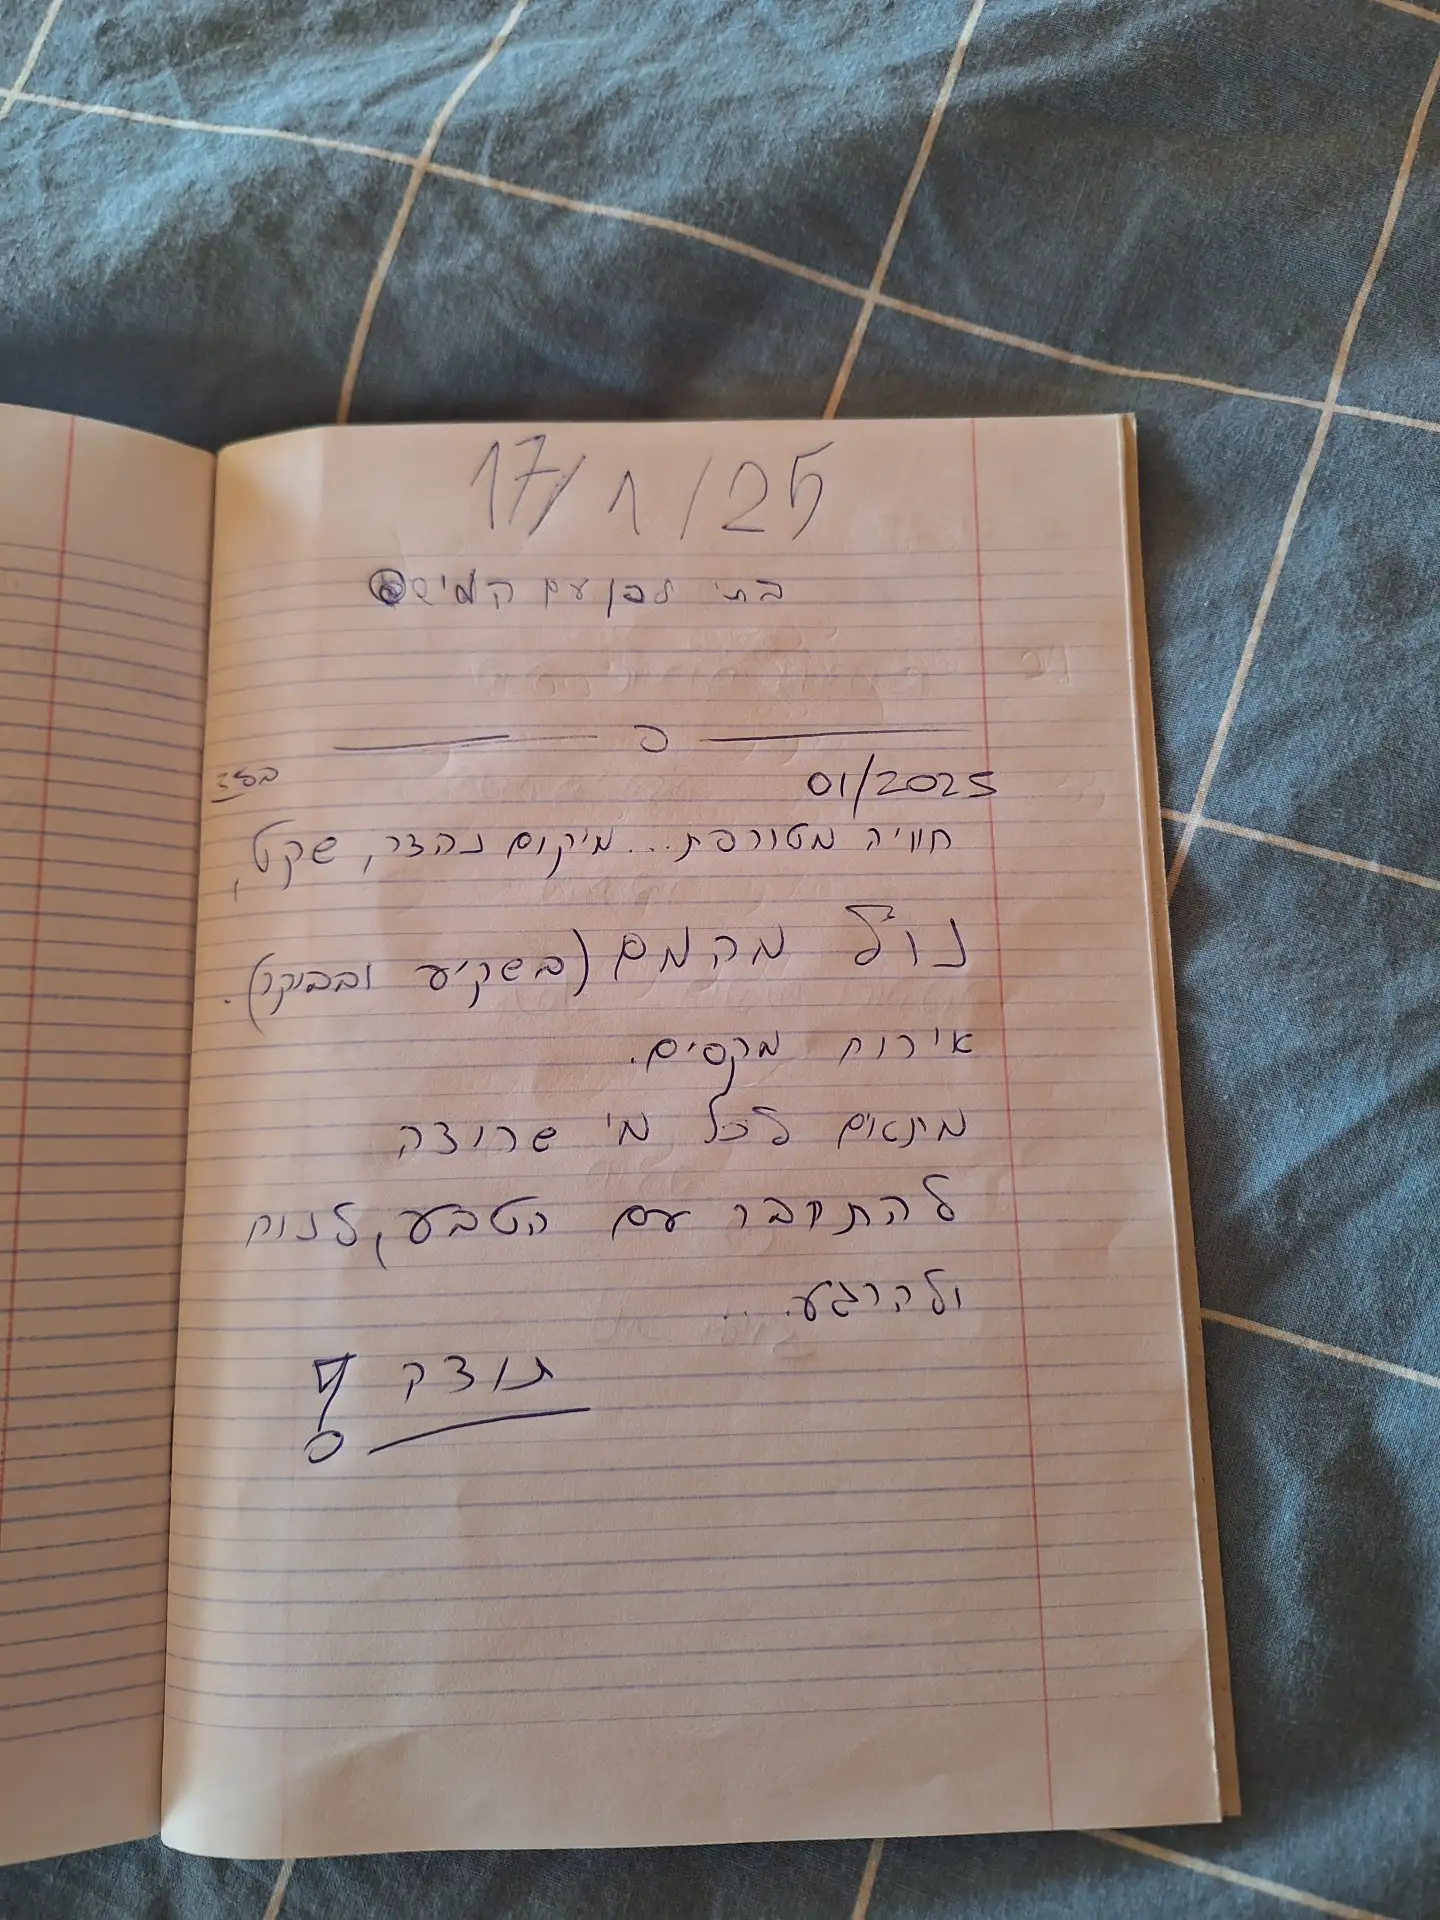 17/1/25
בתי לבן עם
בס״ד
01/2025
חוויה מטורפת... מיקום נהדר, שקט,
נוף מהמם (בשקיעה ובבוקר).
אירוח מקסים.
מתאים לכל מי שרוצה
להתחבר עם הטבע, לנוח
ולהרגע...
תודה!